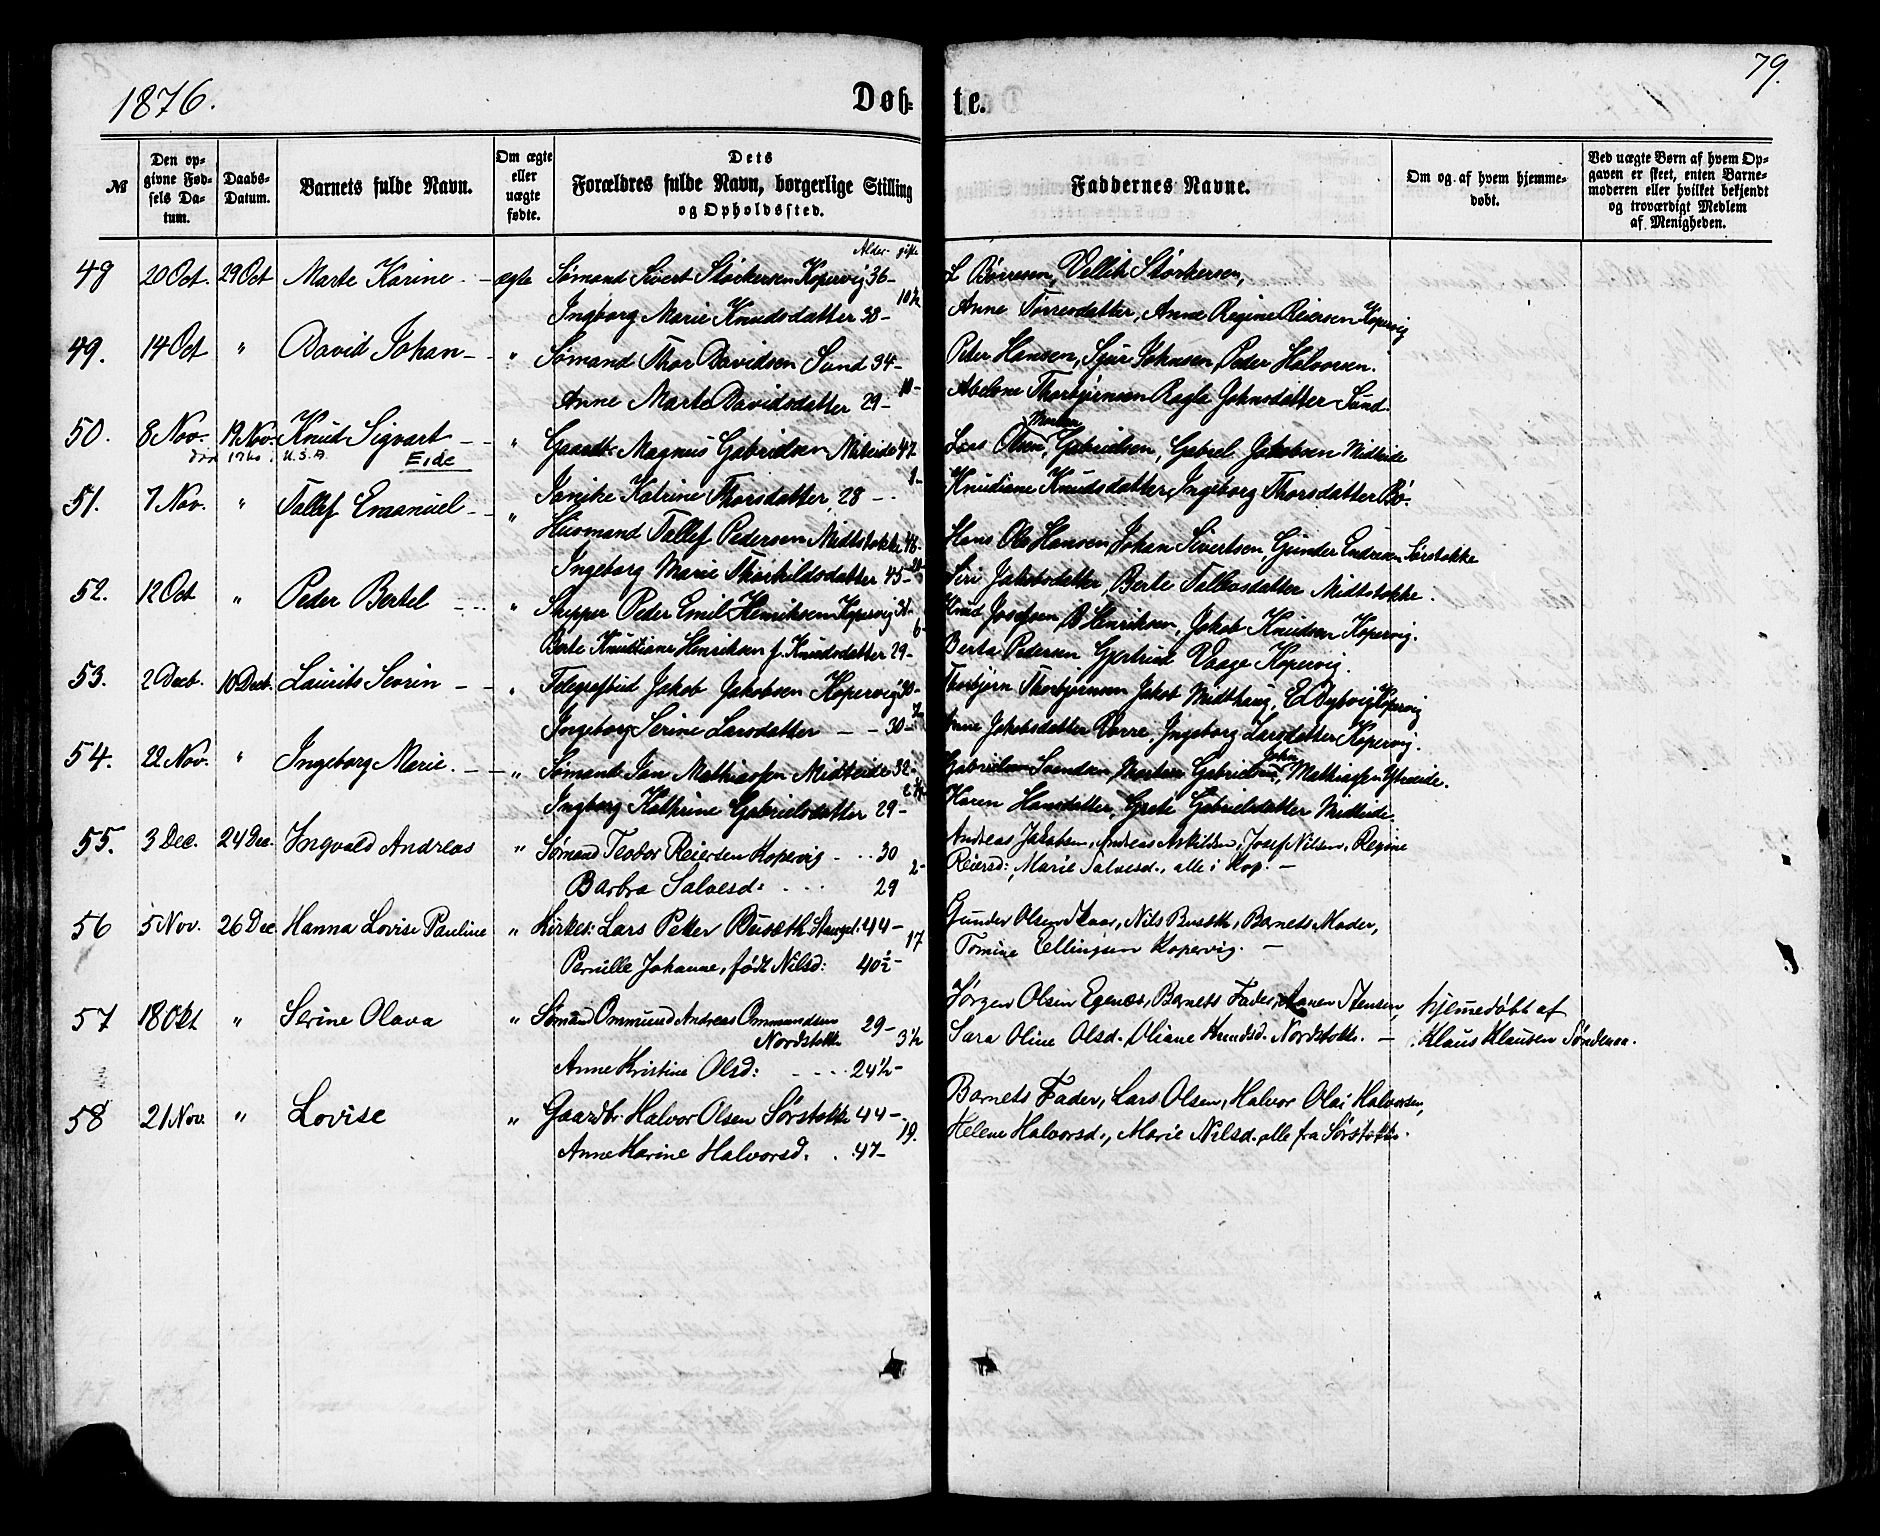 1876.
Døb-
te.
79.
№
Den op-
givne Fød-
sels Da-
tum.
Daabs-
Datum.
Barnets fulde Navn.
Om ægte
eller
uægte
fødte.
Dets
Forældres fulde Navn, borgerlige Stilling
og Opholdssted.
Faddernes Navne.
Om og af hvem hjemme-
døbt.
Ved uægte Børn af hvem Op-
gaven er skeet, enten Barne-
moderen eller hvilket bekjendt
og troværdigt Medlem
af Menigheden.
Alder gifte
48 20 Oct. 29 Oct Marte Karine ægte Sømand Sivert Størkersen Kopervig 36 -
10½
Ingborg Marie Knudsdatter 38 -
L Børresen, Vellik Størkersen,
Anne Tørresdatter, Anne Regine Reiersen Kopervig
49. 14 Oct " David Johan - " Sømand Thor Davidsen Sund 34 -
10 -
Anne Marte Davidsdatter 29 -
Peter Hansen, Sjur Johnsen, Peder Halvorsen.
Abelone Thorbjørnsen Ragla Johnsdatter Sund.
50. 8 Nov. 19 Nov. Knud Sigvart - " Gaardbr Magnus Gabrielsen Miteide 47
død 1960 i U.S.A. Eide
8 -
Janike Katrine Thorsdatter, 28 -
Morten
Lars Olsen, Gabrielsen, Gabriel Jakobsen Midteide
Knudiane Knudsdatter, Ingeborg Thorsdatter Bø.
51. 7 Nov. " Tallef Emanuel - "
Husmand Tallef Pedersen Midtstokke 46 -
Ingeborg Marie Thorkildsdatter 45 -
Hans Ole Hansen, Johan Sivertsen, Gunder Endresen Sørstokke
Siri Jakobsdatter, Berte Tallevsdatter Midtstokke.
52. 12 Oct " Peder Bertel - " Skipper Peder Emil Henriksen Kopervig 31 -
6 -
Berte Knudiane Henriksen f. Knudsdatter 29 -
Knud Josefsen, B Henriksen, Jakob Knudsen Kopervig.
Berta Pedersen Gjertrud Vaage Kopervig.
53. 2 Decb. 10 Decb. Laurits Severin - " Telegrafbud Jakob Jakobsen Kopervig 30 -
Ingeborg Serine Larsdatter - 30 -
Thorbjørn Thorbjørnsen Jakob Midthaug, E Dybvig Kopervig
Anne Jakobsdatter Vorre, Ingeborg Larsdatter Kopervig.
54. 22 Nov. " Ingeborg Marie. - " Sømand Jan Mathiassen Midteide 32 -
Ingborg Kathrine Gabrielsdatter 29 -
John
Gabrielsen Svendsen, Morten Gabrielsen, Mathiassen Ytreeide.
Karen Hansdatter, Grete Gabrielsdatter Midteide.
55. 3 Dec. 24 Dec. Ingvald Andreas " Sømand Teodor Reiersen Kopervig - 30
2 -
Barbra Salvesd: 29
Andreas Jakobsen, Andreas Askildsen, Josef Nilsen, Regine
Reiersd:, Marie Salvesd., alle i Kop. -
56 5 Nov. 26 Dec Hanna Lovise Pauline " Kirkes: Lars Petter Busæth Stangel. 44 -
17
Pernille Johanne, født Nilsd: 40½ -
Gunder Olsen Skaar, Nils Busæth, Barnets Moder,
Tomine Ellingsen Kopervig. -
57 18 Okt " Serine Olava " Sømand Ommund Andreas Ommundsen 29 -
Nordstokke
3½
Anne Kristine Olsd: 24½ -
Jørgen Olsen Egenæs, Barnets Fader, Aanen Stensen,
Sara Oline Olsd. Oliane Knudsd. Nordstokke. -
hjemedøbt af
Klaus Klausen Søndenaa.
58 21 Nov. " Lovise " Gaardbr. Halvor Olsen Sørstokke 44 -
19.
Anne Karine Halvorsd: 47 -
Barnets Fader, Lars Olsen, Halvor Olai Halvorsen,
Helene Halvorsd., Marie Nilsd. alle fra Sørstokke.